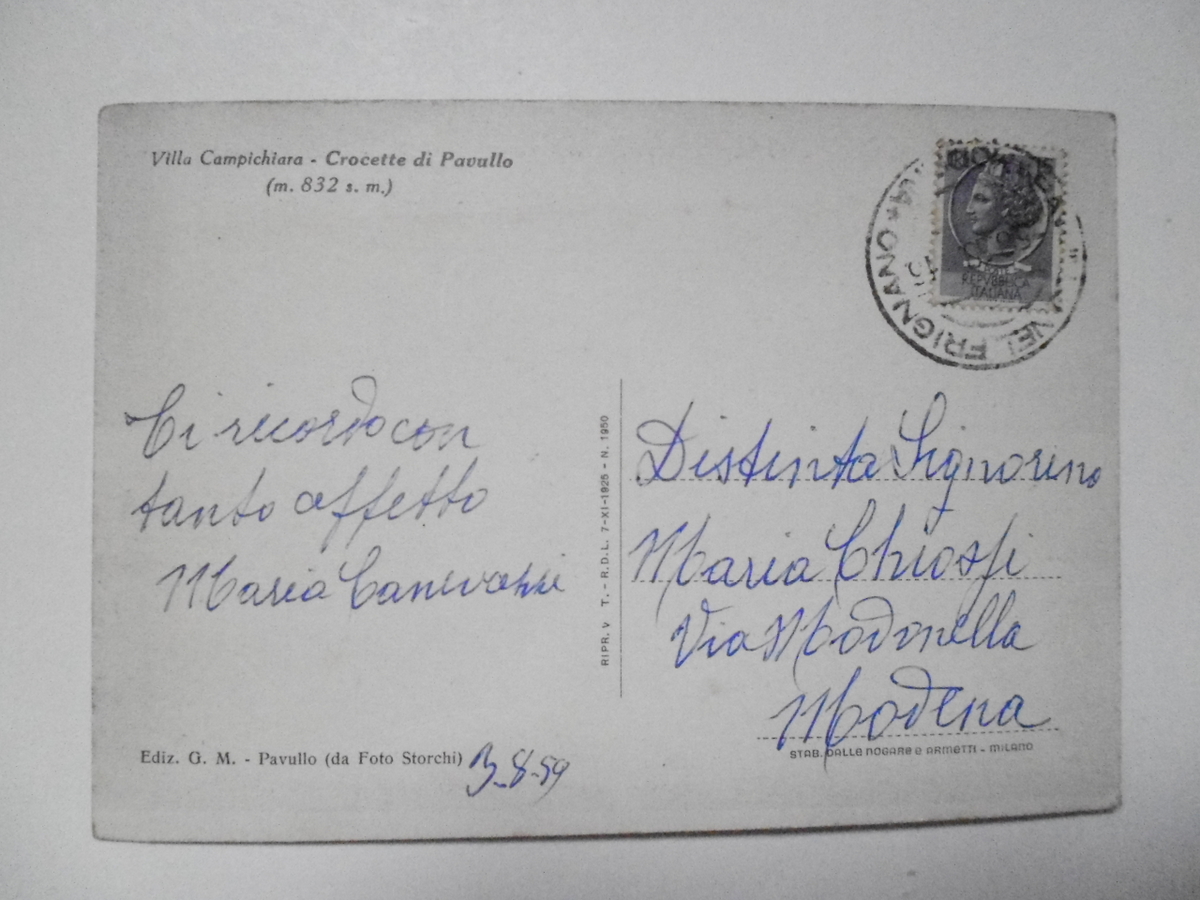 Villa Campichiara - Crocette di Pavullo
(m. 832 s. m.)
NEL FRIGNANO
POSTE
REPVBBLICA
ITALIANA
Ti ricordo con
tanto affetto
Maria
Distinta Signorina
Maria Chiossi
Via Modonella
Modena
RIPR. V T. - R.D.L. 7-XI-1925 - N. 1950
Ediz. G. M. - Pavullo (da Foto Storchi)
3-8-59
STAB. DALLE NOGARE E ARMETTI - MILANO